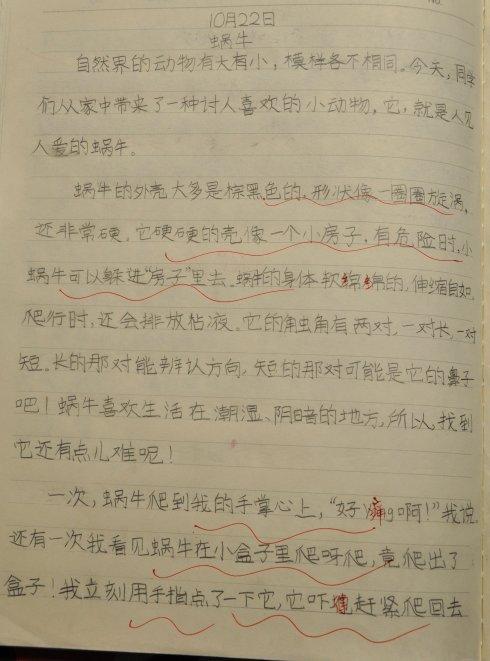 10月22日
蜗牛
自然界的动物有大有小，模样各不相同。今天，同学
们从家中带来了一种讨人喜欢的小动物，它，就是人见
人爱的蜗牛。
蜗牛的外壳大多是棕黑色的，形状像一圈圈旋涡，
还非常硬。它硬硬的壳像一个小房子，有危险时，小
蜗牛可以躲进“房子”里去。蜗牛的身体软绵绵的，伸缩自如，
爬行时，还会排放粘液。它的触角有两对，一对长，一对
短。长的那对能辨认方向，短的那对可能是它的鼻子
吧！蜗牛喜欢生活在潮湿、阴暗的地方，所以，找到
它还有点儿难呢！
一次，蜗牛爬到我的手掌心上，“好痒啊！”我说
还有一次我看见蜗牛在小盒子里爬呀爬，竟爬出了
盒子！我立刻用手指点了一下它，它吓赶紧爬回去